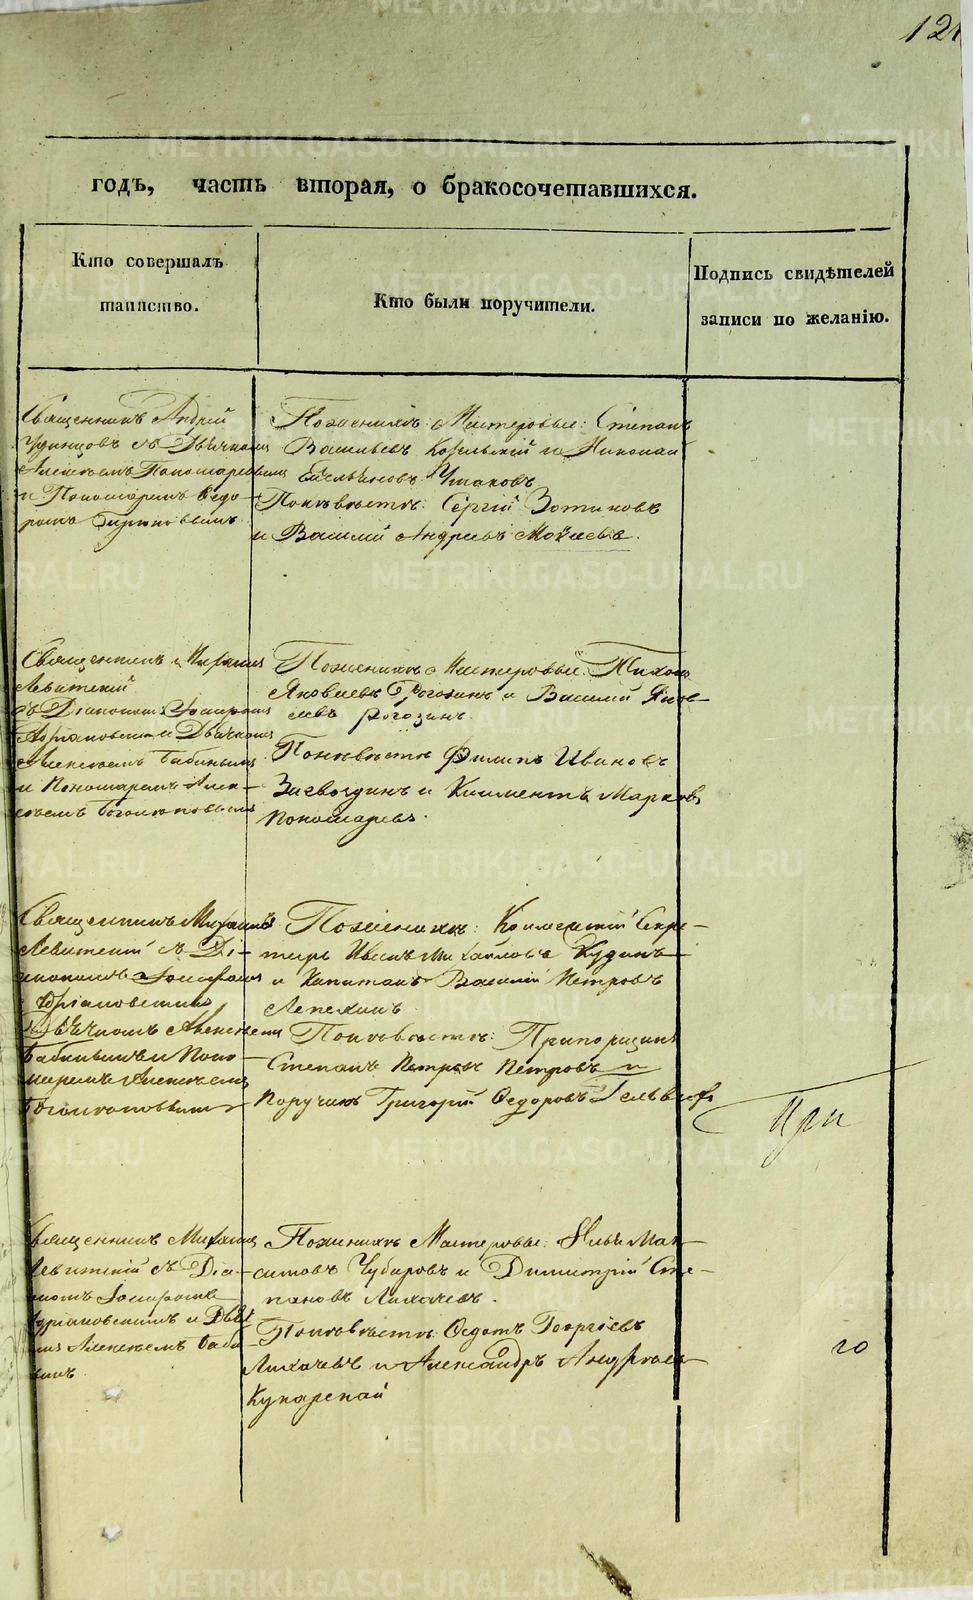 121
годъ, часть вторая, о бракосочетавшихся.
Кто совершалъ
таинство.
Кто были поручители.
Подпись свидѣтелей
записи по желанію.
Священникъ Андрей
Удинцовъ съ Дьячкомъ
Алексѣемъ Пономаревымъ
и Пономаремъ Ѳедо-
ромъ
Поженихѣ: Мастеровые: Степанъ
Васильевъ и Николай
Емельяновъ Ушаковъ
Поневѣстѣ: Сергій Зотиковъ
и Василій Андреевъ Мокѣевъ.
Священникъ Михаилъ
Левитскій
съ Діакономъ
и Дьячкомъ
Алексѣемъ Бабинымъ
и Пономаремъ Алек-
сѣемъ Боголѣповымъ
Поженихѣ Мастеровые: Тихонъ
Яковлевъ Рогозинъ и Василий Яков-
левъ Рогозинъ.
Поневѣстѣ Филипъ Ивановъ
Загвоздинъ и Климентъ Марковъ
Пономаревъ.
Священникъ Михаилъ
Левитскій съ Ді-
акономъ
Дьячкомъ Алексѣемъ
Бабинымъ и Поно-
маремъ Алексѣемъ
Боголѣповымъ
Поженихѣ: Секре-
тарь Иванъ Михайловъ Кудинъ
и Капитанъ Василій Петровъ
Лепехинъ
Поневѣстѣ: Прапорщикъ
Степанъ Петровъ Петровъ и
Поручикъ Григорій Ѳедоровъ
При
Священникъ Михаилъ
Левитскій съ Діа-
кономъ
и Дьяч-
комъ Алексѣемъ Баби-
нымъ
Поженихѣ Мастеровые: Илья Мак-
симовъ Чубаровъ и Димитрій Сте-
пановъ Лихачевъ.
Поневѣстѣ Ѳедотъ Георгіевъ
Лихачевъ и Александръ Андреевъ
го
METRIKI.GASO-URAL.RU